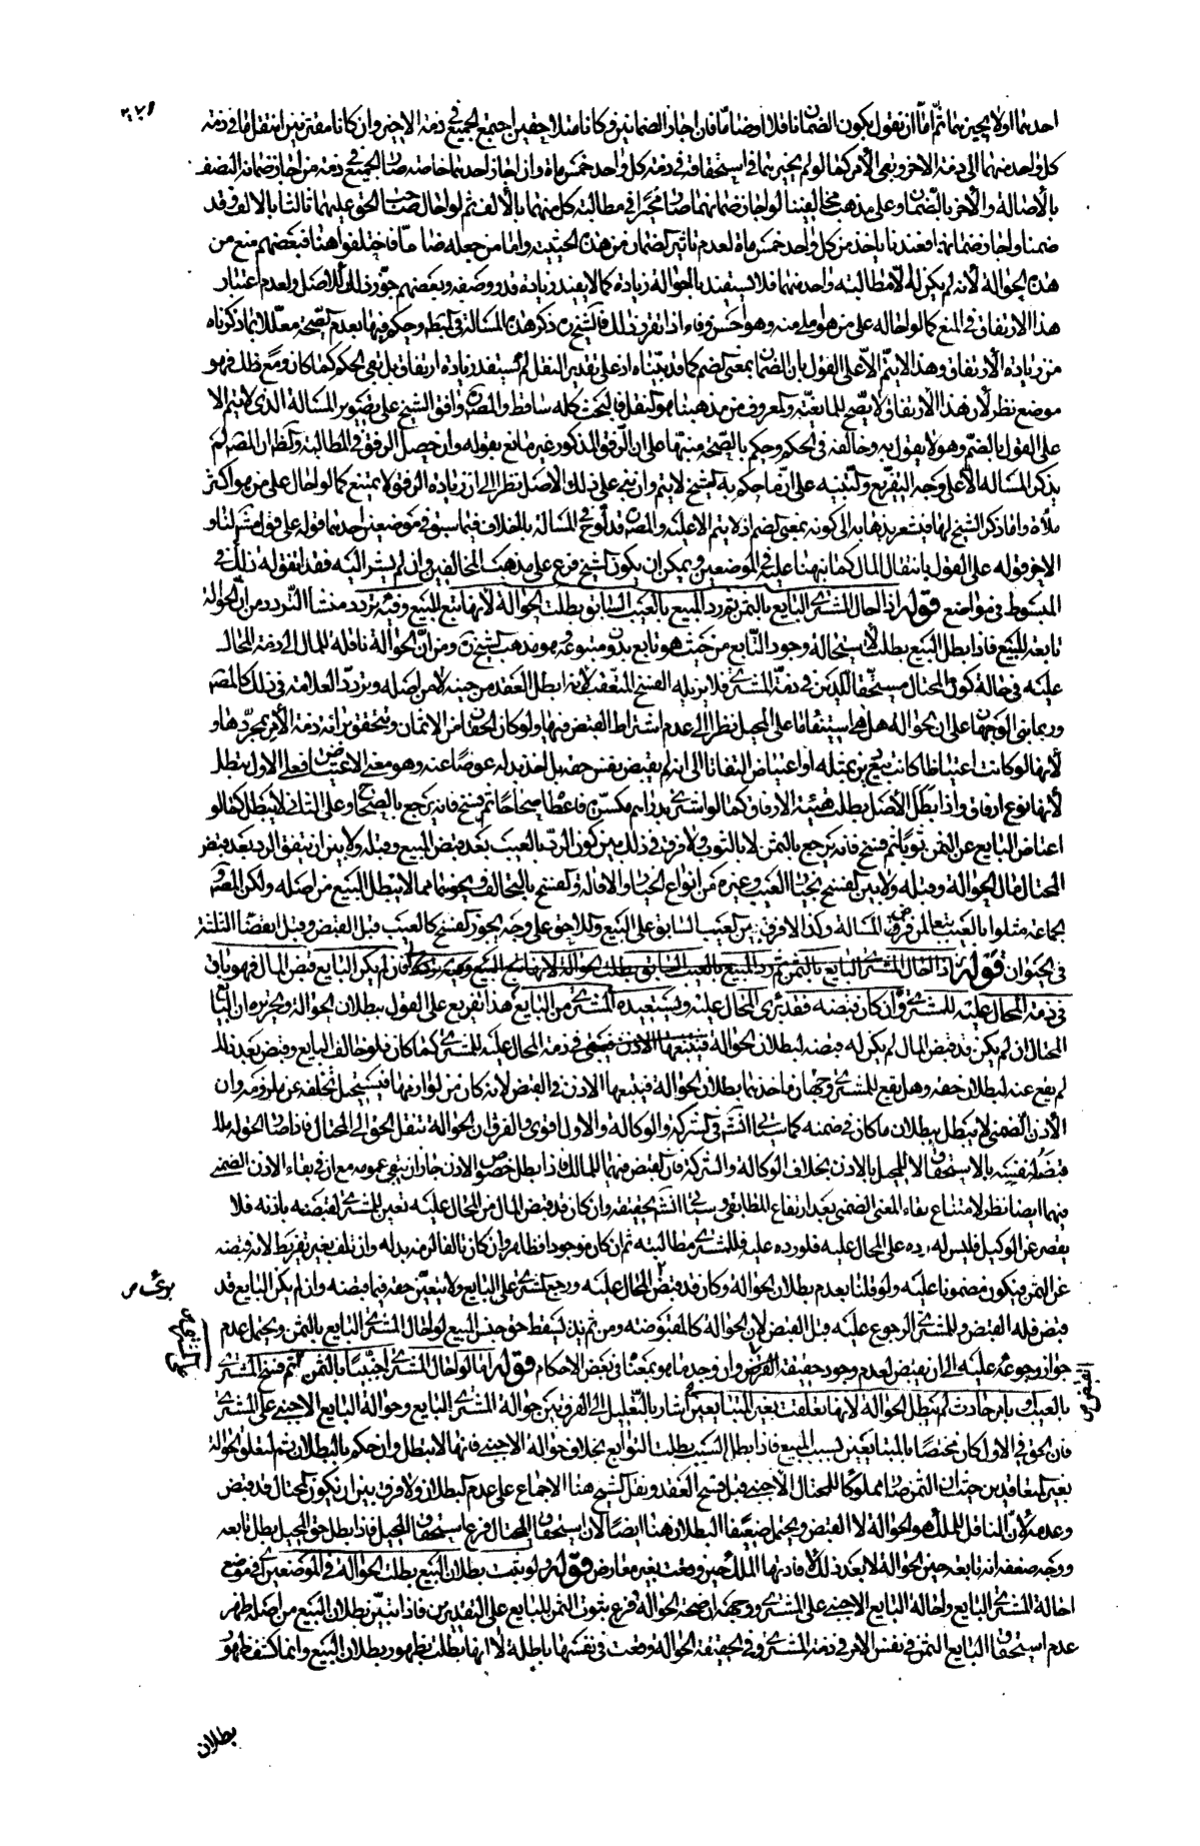 احدهما اولا يجيزهما ثم اما ان نقول بكون الضمان ناقلا او ضاما فان اجاز الضمانين وكانا متلاحقين اجتمع الجميع في ذمة الاخير وان كانا مقترنين انتقل ما في ذمة
كل واحد منهما الى ذمة الاخر وبقى الامر كما لو لم يجيزهما في استحقاقه في ذمة كل واحد خمس ماة وان اجاز احدهما خاصة صار الجميع في ذمة من اجاز ضمانه النصف
بالاصالة والاخر بالضمان وعلى مذهب مخالفينا لو اجاز ضمانهما صار مخيرا في مطالبة كل منهما بالالف ثم لو احال صاحب الحق عليهما ثالثا بالالف وقد
ضمنا واجاز ضمانهما فعندنا ياخذ من كل واحد خمس ماة لعدم تاثير الضمان من هذه الحيثية واما من جعله ضاما فاختلفوا هنا فبعضهم منع من
هذه الحوالة لانه لم يكن له الا مطالبة واحد منهما فلا يستفيد بالحوالة زيادة كما لا يفيد زيادة قدر وصفة وبعضهم جوز ذلك للاصل ولعدم اعتبار
هذا الارتفاق في المنع كما لو احاله على من هو املى منه وهو احسن وفاء اذا تقرر ذلك فالشيخ ره ذكر هذه المسألة في المبسوط وحكم فيها بعدم الصحة معللا بما ذكرناه
من زيادة الارتفاق وهذا لا يتم الا على القول بان الضمان بمعنى الضم كما قد بيناه اذ على تقدير النقل لم يستفد زيادة ارتفاق بل بقى الحكم كما كان ومع ذلك فهو
موضع نظر لان هذا الارتفاق لا يصح للمانعية والمعروف من مذهبنا هو النقل فالبحث كله ساقط والمصنف وافق الشيخ على تصوير المسألة الذي لا يتم الا
على القول بالضم وهو لا يقول به وخالفه في الحكم وحكم بالصحة منبها على ان الرفق المذكور غير مانع بقوله وان حصل الرفق في المطالبة والظاهر ان المصنف لم
يذكر المسألة الا على وجه التفريع والتنبيه على ان ما حكم به الشيخ لا يتم وان بني على ذلك الاصل نظرا الى ان زيادة الرفق لا تمنع كما لو احال على من هو اكثر
ملاءة واما ذكر الشيخ لها فيشعر بذهابه الى كونه بمعنى الضم اذ لا يتم الا عليه والمصنف قد لوح في المسألة بالخلاف فيما سبق في موضعين احدهما قوله على قول مشهور لنا و
الاخر قوله على القول بانتقال المال كما نبهنا عليه في الموضعين ويمكن ان يكون الشيخ فرع على مذهب المخالفين وان لم يشر اليه فقد اتفق له ذلك في
المبسوط في مواضع قوله اذا احال المشتري البايع بالثمن ثم رد المبيع بالعيب السابق بطلت الحوالة لانها تتبع للبيع وفيه تردد منشأ التردد من ان الحوالة
تابعة للبيع فاذا بطل البيع بطلت لاستحالة وجود التابع من حيث هو تابع بدون متبوعه وهو مذهب الشيخ ره ومن ان الحوالة ناقلة للمال الى ذمة المحال
عليه في حالة كون المحتال مستحقا للدين في ذمة المشتري فلا يزيله الفسخ المتعقب لانه ابطل العقد من حينه لا من اصله وتردد العلامة في ذلك كالمصنف
وربما بني الوجهان على ان الحوالة هل هي استيفاء ما على المحيل نظرا الى عدم اشتراط القبض فيها ولو كان الحقان من الاثمان ويتحقق براءة ذمة الامر بمجردها و
لانها لو كانت اعتياضا كانت بيع دين بمثله او اعتياض التفاتا الى انه لم يقبض نفس حقه بل اخذ بدله عوضا عنه وهو معنى الاعتياض فعلى الاول تبطل
لانها نوع ارفاق واذا بطل الاصل بطلت هيئة الارفاق كما لو اشترى بدراهم مكسرة فاعطاه صحاحا ثم فسخ فانه يرجع بالصحاح وعلى الثاني لا تبطل كما لو
اعتاض البايع عن الثمن ثوبا ثم فسخ فانه يرجع بالثمن لا بالثوب ولا فرق في ذلك بين كون الرد بالعيب بعد قبض المبيع وقبله ولا بين ان يتفق الرد بعد قبض
المحتال مال الحوالة وقبله ولا بين الفسخ بخيار العيب وغيره من انواع الخيار والاقالة والفسخ بالتحالف ونحوهما مما لا يبطل البيع من اصله ولكن المصنف و
جماعة مثلوا بالعيب تبعا لمن فرض المسألة وكذا لا فرق بين العيب السابق على البيع واللاحق على وجه يجوز الفسخ كالعيب قبل القبض وقبل انقضاء الثلثة
في الحيوان قوله اذا احال المشتري البايع بالثمن ثم رد المبيع بالعيب السابق بطلت الحوالة لانها تتبع البيع وفيه تردد فان لم يكن البايع قبض المال فهو باق
في ذمة المحال عليه للمشتري وان كان قبضه فقد برئ المحال عليه ويستعيده المشتري من البايع هذا تفريع على القول ببطلان الحوالة وتحريره ان البايع
المحتال ان لم يكن قد قبض المال لم يكن له قبضه لبطلان الحوالة فيتبعها الاذن فيبقى في ذمة المحال عليه للمشتري كما كان فلو خالف البايع وقبض بعد ذلك
لم يقع عنه لبطلان حقه وهل يقع للمشتري وجهان ماخذهما بطلان الحوالة فيتبعها الاذن في القبض لانه كان من لوازمها فيستحيل تخلفه عن ملزومه وان
الاذن الضمني لا يبطل ببطلان ما كان في ضمنه كما سياتي انشاء الله في الشركة والوكالة والاول اقوى والفرق ان الحوالة تنقل الحق الى المحتال فاذا صار الحق له ملك
قبضه لنفسه بالاستحقاق لا للمحيل بالاذن بخلاف الوكالة والشركة فان القبض فيهما للمالك فاذا بطل خصوص الاذن جاز ان يبقى عمومه مع ان في بقاء الاذن الضمني
فيهما ايضا نظر لامتناع بقاء المعنى الضمني بعد ارتفاع المطابقي وسياتي انشاء الله تحقيقه وان كان قد قبض المال من المحال عليه تعين للمشتري لقبضه باذنه فلا
يقصر عن الوكيل فليس له رده على المحال عليه فلو رده عليه فللمشتري مطالبته ثم ان كان موجودا فظاهر وان كان تالفا لزمه بدله وان تلف بغير تفريط لانه قبضه
عن الثمن فيكون مضمونا عليه ولو قلنا بعدم بطلان الحوالة وكان قد قبض المحال عليه رجع المشتري على البايع ولا يتعين حقه فيما قبضه وان لم يكن البايع قد
قبض فله القبض وللمشتري الرجوع عليه قبل القبض لان الحوالة كالمقبوضة ومن ثم يسقط حق حبس المبيع لو احال المشتري البايع بالثمن ويحتمل عدم
جواز رجوعه عليه الى ان يقبض لعدم وجود حقيقة القبض وان وجد ما هو بمعناه في بعض الاحكام قوله اما لو احال المشتري اجنبيا بالثمن ثم فسخ المشتري
بالعيب او بامر حادث لم تبطل الحوالة لانها تعلقت بغير المتبايعين اشار بالتعليل الى الفرق بين حوالة المشتري البايع وحوالة البايع الاجنبي على المشتري
فان الحق في الاول كان مختصا بالمتبايعين لسبب المبيع فاذا بطل السبب بطلت التوابع بخلاف حوالة الاجنبي فانها لا تبطل وان حكم بالبطلان ثم لتعلق الحوالة
بغير المتعاقدين حيث ان الثمن صار مملوكا للمحتال الاجنبي قبل فسخ العقد ونقل الشيخ هنا الاجماع على عدم البطلان ولا فرق بين ان يكون المحتال قد قبض
وعدمه لان الناقل للملك هو الحوالة لا القبض ويحتمل ضعيفا البطلان هنا ايضا لان استحقاق المحتال فرع استحقاق المحيل فاذا بطل حق المحيل بطل تابعه
ووجه ضعفه انه تابعه حين الحوالة لا بعد ذلك لافادتها الملك حين وقعت بغير معارض قوله ولو ثبت بطلان البيع بطلت الحوالة في الموضعين اي في موضع
احالة المشتري البايع واحالة البايع الاجنبي على المشتري ووجهه ان صحة الحوالة فرع ثبوت الثمن للبايع على التقديرين فاذا تبين بطلان البيع من اصله ظهر
عدم استحقاق البايع الثمن في نفس الامر في ذمة المشتري وفي الحقيقة الحوالة وقعت في نفسها باطلة لا انها بطلت بظهور بطلان البيع وانما كشف ظهور
بطلان